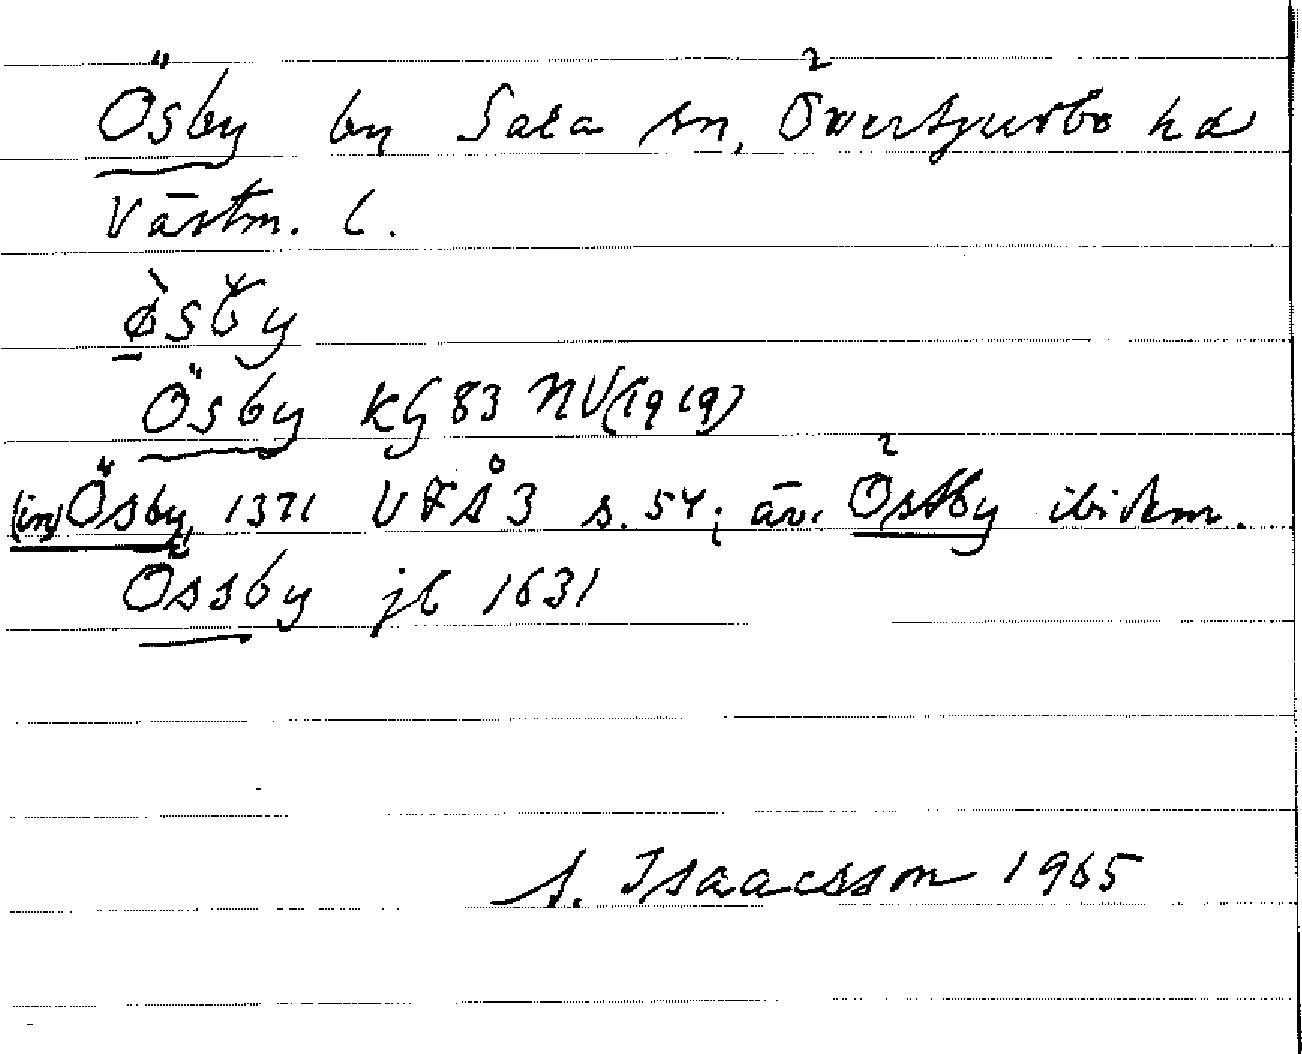 Ösby by Sala sn, Övertjurbo hd
Västm. l.
ø̀sby
Ösby kg 83 NV (1919)
(in) Ösby 1371 VFÅ 3 s. 54; äv. Östby ibidem.
Össby jb 1631
A. Isaacsson 1965